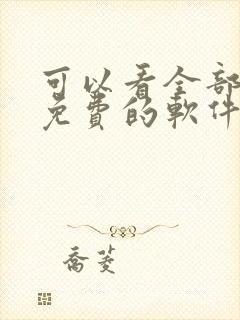 可以看全部
免費的軟件
喬菱